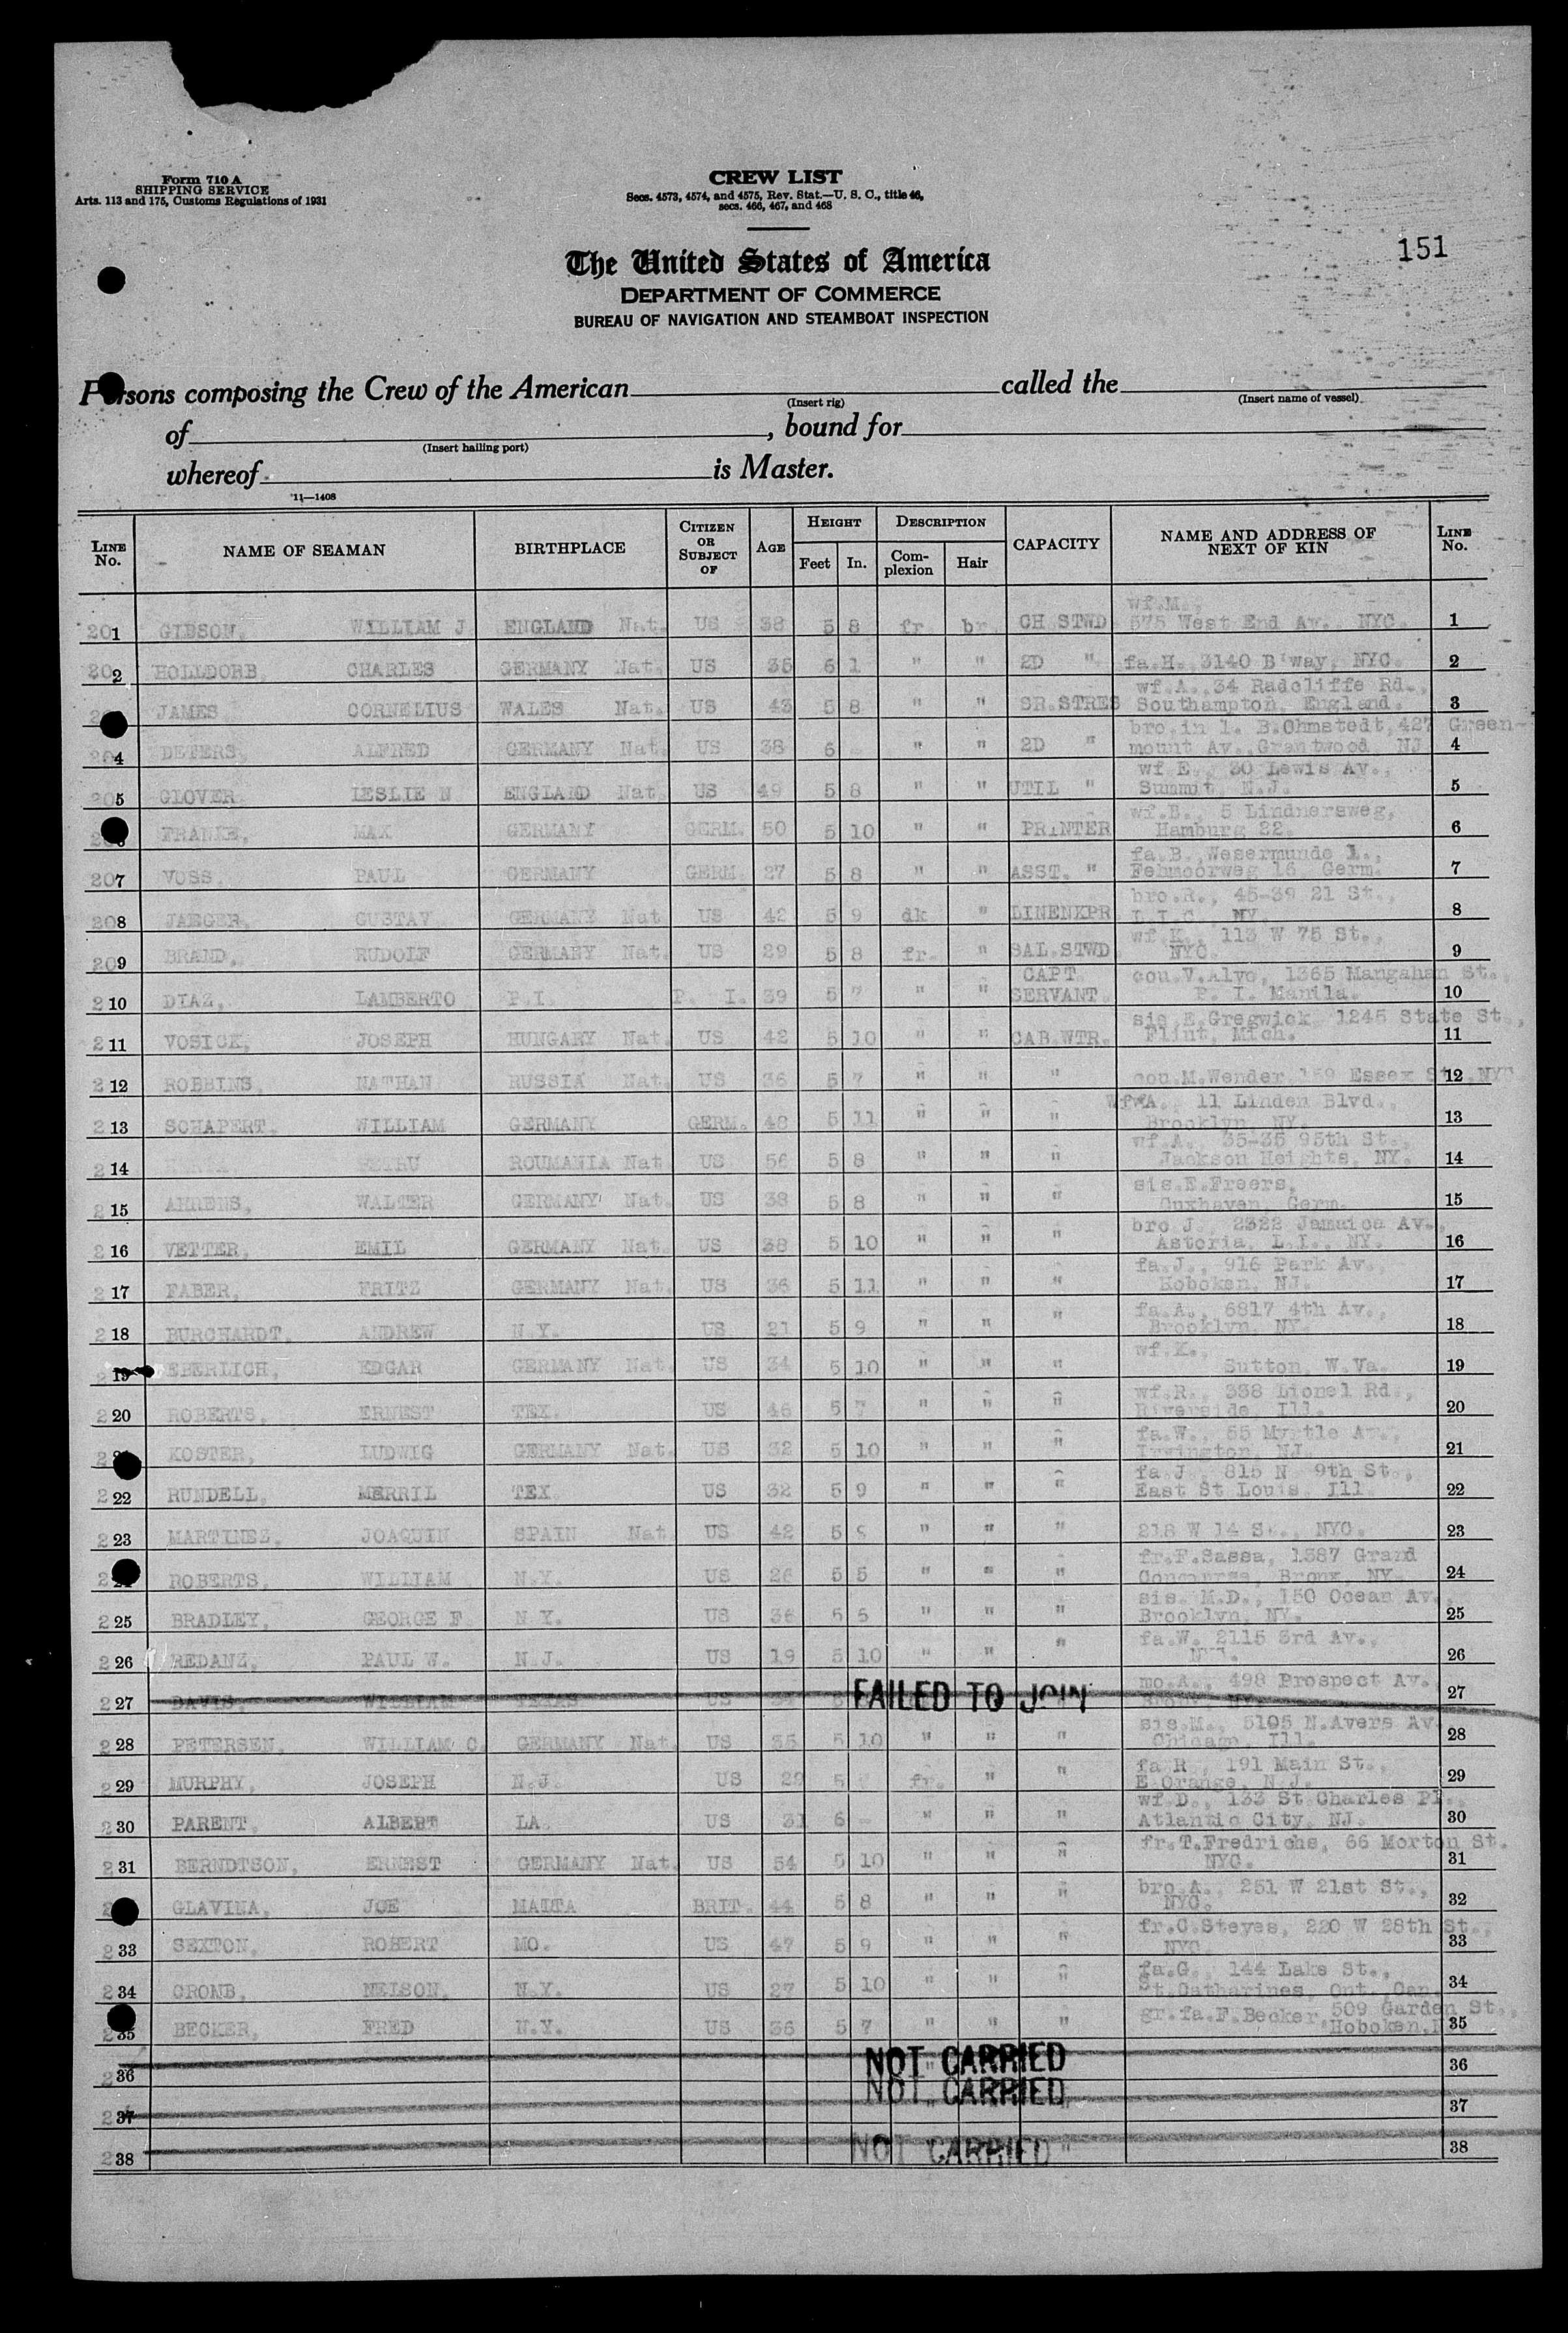 Form 710 A
SHIPPING SERVICE
Arts. 113 and 175, Customs Regulations of 1931
CREW LIST
Secs. 4573, 4574, and 4575, Rev. Stat.—U. S. C., title 46,
secs. 466, 467, and 468
151
The United States of America
DEPARTMENT OF COMMERCE
BUREAU OF NAVIGATION AND STEAMBOAT INSPECTION
Persons composing the Crew of the American called the
(Insert rig) (Insert name of vessel)
of , bound for
(Insert hailing port)
whereof is Master.
11—1408
LINE No. NAME OF SEAMAN BIRTHPLACE CITIZEN OR SUBJECT OF AGE HEIGHT Feet In. DESCRIPTION Complexion Hair CAPACITY NAME AND ADDRESS OF NEXT OF KIN LINE No.
wf.M.,
201 GIBSON, WILLIAM J ENGLAND Nat. US 38 5 8 fr. br. CH STWD 575 West End Av. NYC. 1
202 HOLLDORB, CHARLES GERMANY Nat. US 35 6 1 " " 2D " fa.H. 3140 B'way, NYC. 2
wf.A., 34 Radcliffe Rd.,
JAMES CORNELIUS WALES Nat. US 43 5 8 " " SR.STRES Southampton, England. 3
bro.in l. B.Ohmstedt, 427 Green-
204 DETERS, ALFRED GERMANY Nat. US 38 6 - " " 2D " mount Av., Grantwood, NJ 4
wf E., 30 Lewis Av.,
205 GLOVER LESLIE N ENGLAND Nat. US 49 5 8 " " UTIL " Summit, N.J. 5
wf.B., 5 Lindnersweg,
FRANKE, MAX GERMANY GERM. 50 5 10 " " PRINTER Hamburg 22. 6
fa.B., Wesermunde 1.,
207 VOSS PAUL GERMANY GERM. 27 5 8 " " ASST. " 16, Germ. 7
bro.R., 45-39 21 St.,
208 JAEGER, GUSTAV GERMANY Nat US 42 5 9 dk " LINENKPR L.I.C. NY. 8
wf.K., 113 W 75 St.,
209 BRAND, RUDOLF GERMANY Nat. US 29 5 8 fr. " SAL.STWD NYC. 9
CAPT. cou.V.Alvo, 1365 Mangahan St.,
210 DIAZ, LAMBERTO P.I. P. I. 39 5 7 " " SERVANT. P. I. Manila. 10
sis.E.Gregwick 1245 State St.,
211 VOSICK, JOSEPH HUNGARY Nat. US 42 5 10 " " CAB.WTR. Flint, Mich. 11
212 ROBBINS, NATHAN RUSSIA Nat. US 36 5 7 " " " cou.M.Wender 159 Essex St. NYC 12
wf.A., 11 Linden Blvd.,
213 SCHAPERT, WILLIAM GERMANY GERM. 48 5 11 " " " Brooklyn, NY. 13
wf.A., 35-35 95th St.,
214 PETRU ROUMANIA Nat US 56 5 8 " " " Jackson Heights, NY. 14
sis.E.Freers,
215 AHRENS, WALTER GERMANY Nat. US 38 5 8 " " " Cuxhaven, Germ. 15
bro J., 2322 Jamaica Av.,
216 VETTER, EMIL GERMANY Nat. US 38 5 10 " " " Astoria, L.I., NY. 16
fa.J., 916 Park Av.,
217 FABER, FRITZ GERMANY Nat. US 36 5 11 " " " Hoboken, NJ. 17
fa.A., 6817 4th Av.,
218 BURCHARDT, ANDREW N.Y. US 21 5 9 " " " Brooklyn, NY. 18
wf.K.,
219 EBERLICH, EDGAR GERMANY Nat. US 34 5 10 " " " Sutton, W.Va. 19
wf.R., 338 Lionel Rd.,
220 ROBERTS, ERNEST TEX. US 46 5 7 " " " Riverside, Ill. 20
fa.W., 65 Myrtle Av.,
KOSTER, LUDWIG GERMANY Nat. US 32 5 10 " " " Irvington, NJ. 21
fa.J., 815 N 9th St.,
222 RUNDELL, MERRIL TEX US 32 5 9 " " " East St Louis, Ill. 22
223 MARTINEZ, JOAQUIN SPAIN Nat US 42 5 " " " 218 W 14 St., NYC. 23
fr.F.Sassa, 1387 Grand
ROBERTS, WILLIAM N.Y. US 26 5 5 " " " Concourse, Bronx, NY. 24
sis. M.D., 150 Ocean Av.
225 BRADLEY, GEORGE F N.Y. US 36 5 5 " " " Brooklyn, NY. 25
fa.W. 2115 3rd Av.,
226 REDANZ, PAUL W. N.J. US 19 5 10 " " " NYC. 26
mo.A., 498 Prospect Av.
227 DAVIS, WILLIAM TEXAS US FAILED TO JOIN 27
sis.M., 5105 N.Avers Av
228 PETERSEN, WILLIAM C. GERMANY Nat. US 35 5 10 " " " Chicago, Ill. 28
fa R., 191 Main St.,
229 MURPHY, JOSEPH N.J. US 29 5 fr. " " E Orange, N.J. 29
wf D., 133 St Charles Pl.,
230 PARENT, ALBERT LA. US 31 6 - " " " Atlantic City, NJ. 30
fr.T.Fredrichs, 66 Morton St.
231 BERNDTSON, ERNEST GERMANY Nat. US 54 5 10 " " " NYC. 31
bro.A., 251 W 21st St.,
GLAVINA, JOE MALTA BRIT 44 5 8 " " " NYC. 32
fr.C.Steyes, 220 W 28th St.,
233 SEXTON, ROBERT MO. US 47 5 9 " " " NYC 33
fa.G., 144 Lake St.,
234 CROMB, NELSON, N.Y. US 27 5 10 " " " St.Catharines, Ont. Can. 34
gr.fa.F.Becker 509 Garden St.,
235 BECKER, FRED N.Y. US 36 5 7 " " " Hoboken, 35
236 NOT CARRIED 36
237 NOT CARRIED 37
238 NOT CARRIED " 38